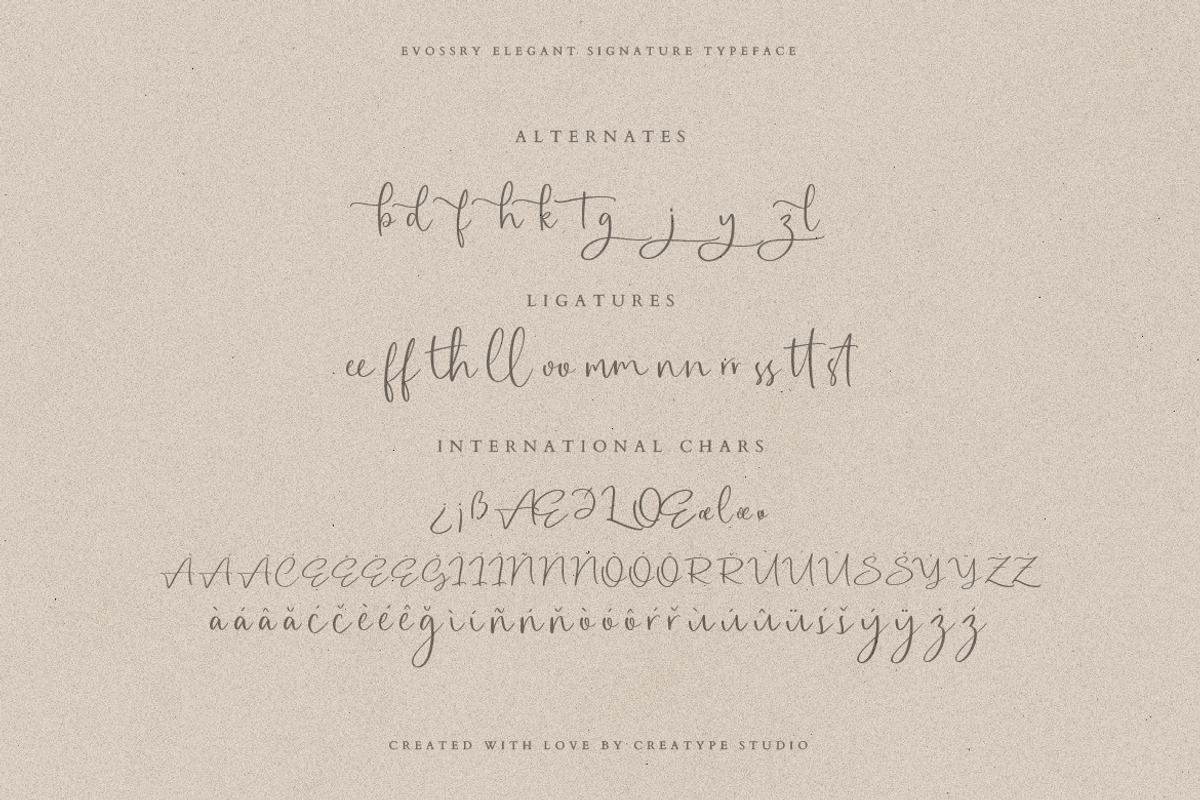 EVOSSRY ELEGANT SIGNATURE TYPEFACE
ALTERNATES
b d f h k t g j y z l
LIGATURES
ee ff th ll oo mm nn rr ss tt st
INTERNATIONAL CHARS
à á â ă ć č è é ê ğ ì í ñ ń ň ò ó ô ŕ ř ù ú û ü ś š ý ÿ ż ź
CREATED WITH LOVE BY CREATYPE STUDIO